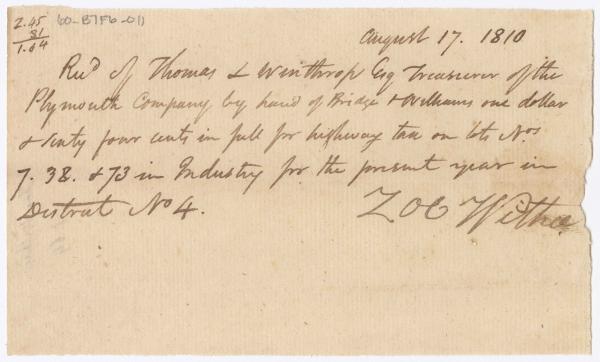 2.45
81
1.64
60-B7F6-011
August 17. 1810
Rec'd of Thomas L Winthrop Esq Treasurer of the
Plymouth Company by hand of Bridge & Williams one dollar
& sixty four cents in full for highway tax on lots Nos
7. 38. & 73 in Industry for the present year in
District No 4.
Zoe Withee